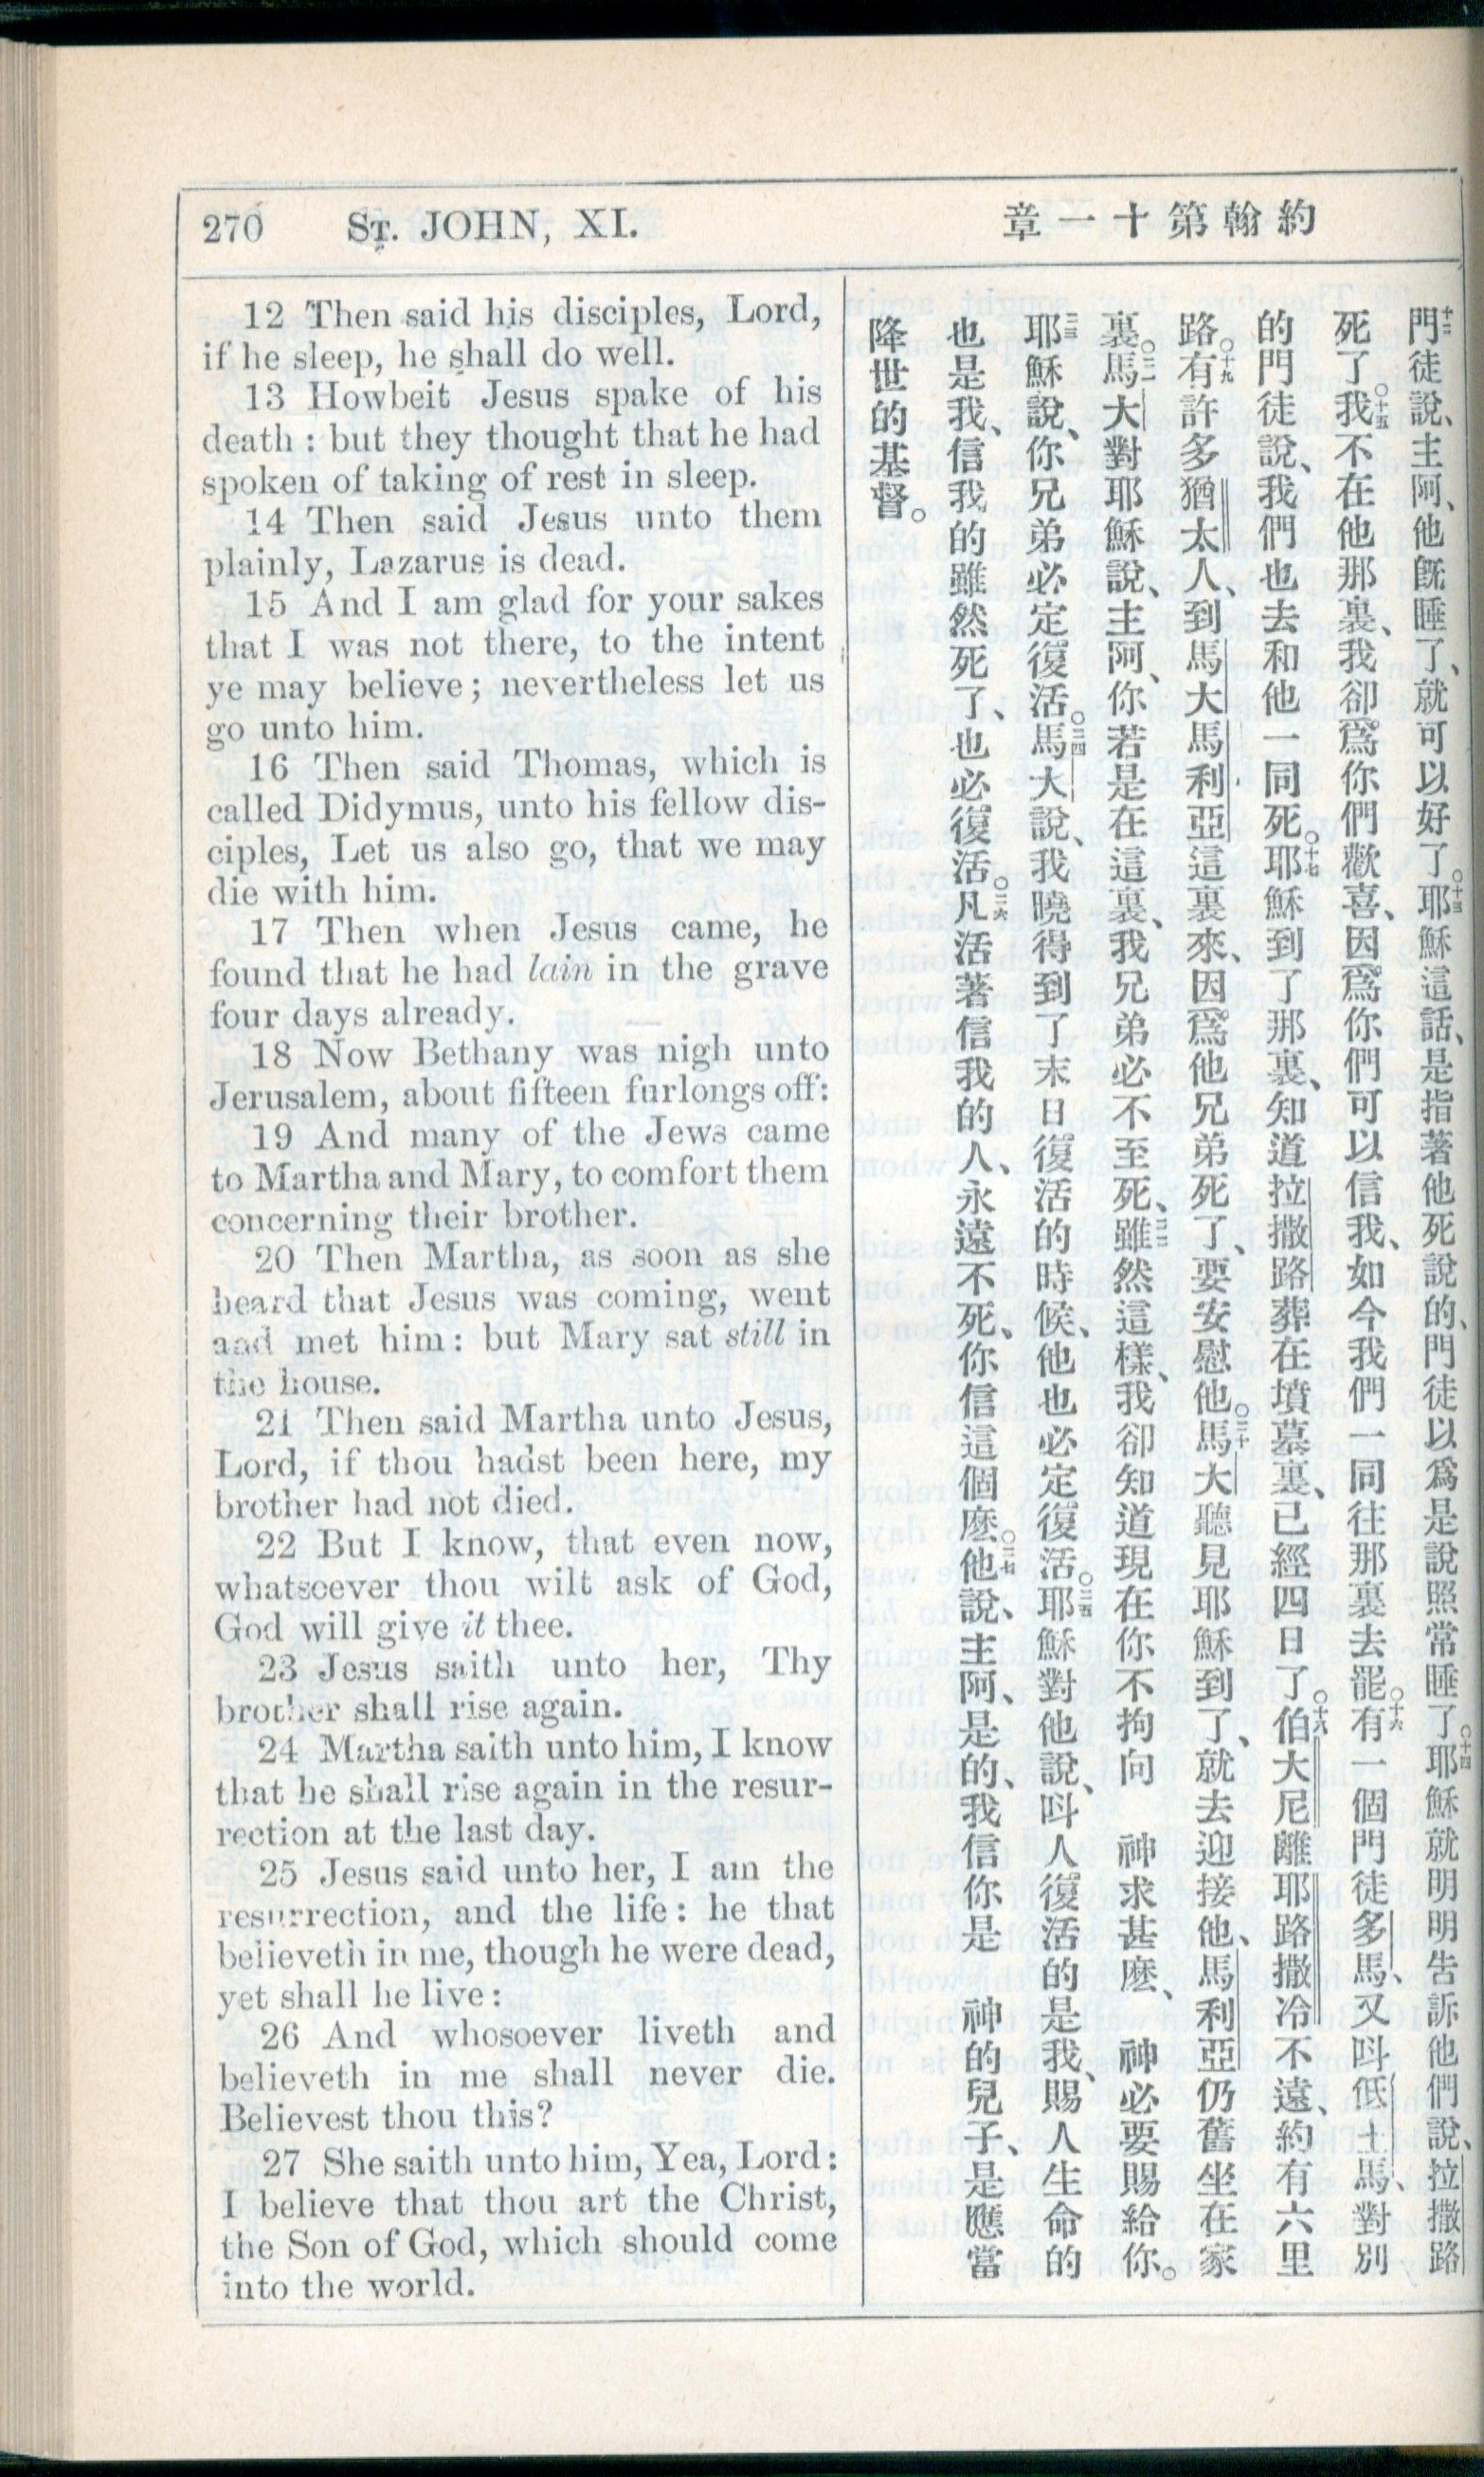 270 St. JOHN, XI.
約翰第十一章
12 Then said his disciples, Lord,
if he sleep, he shall do well.
13 Howbeit Jesus spake of his
death : but they thought that he had
spoken of taking of rest in sleep.
14 Then said Jesus unto them
plainly, Lazarus is dead.
15 And I am glad for your sakes
that I was not there, to the intent
ye may believe; nevertheless let us
go unto him.
16 Then said Thomas, which is
called Didymus, unto his fellow dis-
ciples, Let us also go, that we may
die with him.
17 Then when Jesus came, he
found that he had lain in the grave
four days already.
18 Now Bethany was nigh unto
Jerusalem, about fifteen furlongs off:
19 And many of the Jews came
to Martha and Mary, to comfort them
concerning their brother.
20 Then Martha, as soon as she
heard that Jesus was coming, went
and met him: but Mary sat still in
the house.
21 Then said Martha unto Jesus,
Lord, if thou hadst been here, my
brother had not died.
22 But I know, that even now,
whatsoever thou wilt ask of God,
God will give it thee.
23 Jesus saith unto her, Thy
brother shall rise again.
24 Martha saith unto him, I know
that he shall rise again in the resur-
rection at the last day.
25 Jesus said unto her, I am the
resurrection, and the life: he that
believeth in me, though he were dead,
yet shall he live:
26 And whosoever liveth and
believeth in me shall never die.
Believest thou this?
27 She saith unto him, Yea, Lord:
I believe that thou art the Christ,
the Son of God, which should come
into the world.
十二門徒說、主阿、他旣睡了、就可以好了。十三耶穌這話、是指著他死說的、門徒以爲是說照常睡了。十四耶穌就明明告訴他們說、拉撒路
死了。十五我不在他那裏、我卻爲你們歡喜、因爲你們可以信我、如今我們一同往那裏去罷。十六有一個門徒多馬、又呌低土馬、對別
的門徒說、我們也去和他一同死。十七耶穌到了那裏、知道拉撒路葬在墳墓裏、已經四日了。十八伯大尼離耶路撒冷不遠、約有六里
路。十九有許多猶太人、到馬大馬利亞這裏來、因爲他兄弟死了、要安慰他。二十馬大聽見耶穌到了、就去迎接他、馬利亞仍舊坐在家
裏。二一馬大對耶穌說、主阿、你若是在這裏、我兄弟必不至死、二二雖然這樣、我卻知道現在你不拘向 神求甚麽、 神必要賜給你。
二三耶穌說、你兄弟必定復活。二四馬大說、我曉得到了末日復活的時候、他也必定復活。二五耶穌對他說、呌人復活的是我、賜人生命的
也是我、信我的雖然死了、也必復活。二六凡活著信我的人、永遠不死、你信這個麽。二七他說、主阿、是的、我信你是 神的兒子、是應當
降世的基督。